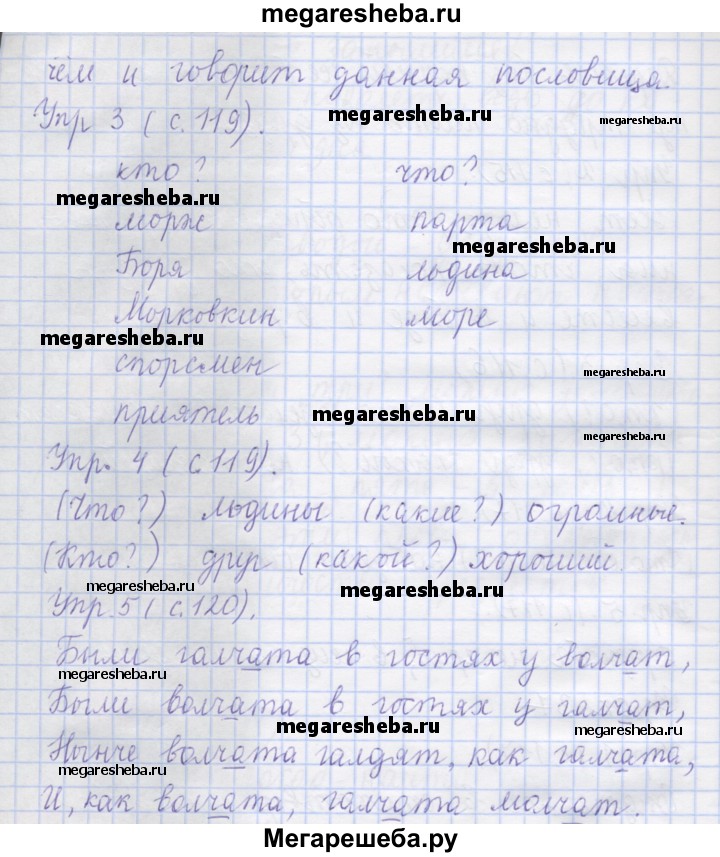 megaresheba.ru
чем и говорит данная пословица.
megaresheba.ru megaresheba.ru
Упр 3 (с. 119).
кто? что?
megaresheba.ru
морж парта
megaresheba.ru
Боря льдина
Морковкин море
megaresheba.ru
спорсмен megaresheba.ru
приятель megaresheba.ru
megaresheba.ru
Упр. 4 (с.119).
(Что?) льдины (какие?) огромные.
(Кто?) друг (какой?) хороший.
megaresheba.ru megaresheba.ru
Упр.5 (с.120).
Были галчата в гостях у волчат,
megaresheba.ru
Были волчата в гостях у галчат,
megaresheba.ru megaresheba.ru
Нынче волчата галдят, как галчата,
megaresheba.ru megaresheba.ru
И, как волчата, галчата молчат.
Мегарешеба.ру